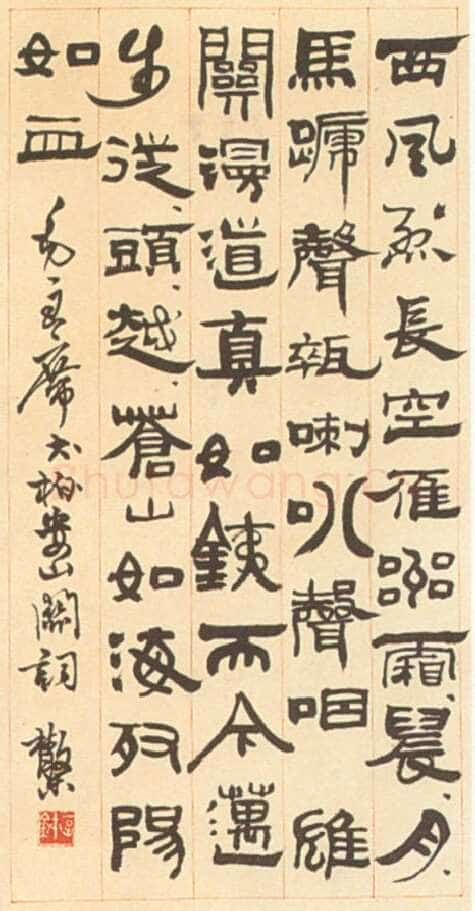 西風烈長空雁嘂霜晨月
馬蹏聲碎喇叭聲咽雄
關漫道真如銕而今邁
步從頭越蒼山如海殘陽
如血
毛主席婁山關詞